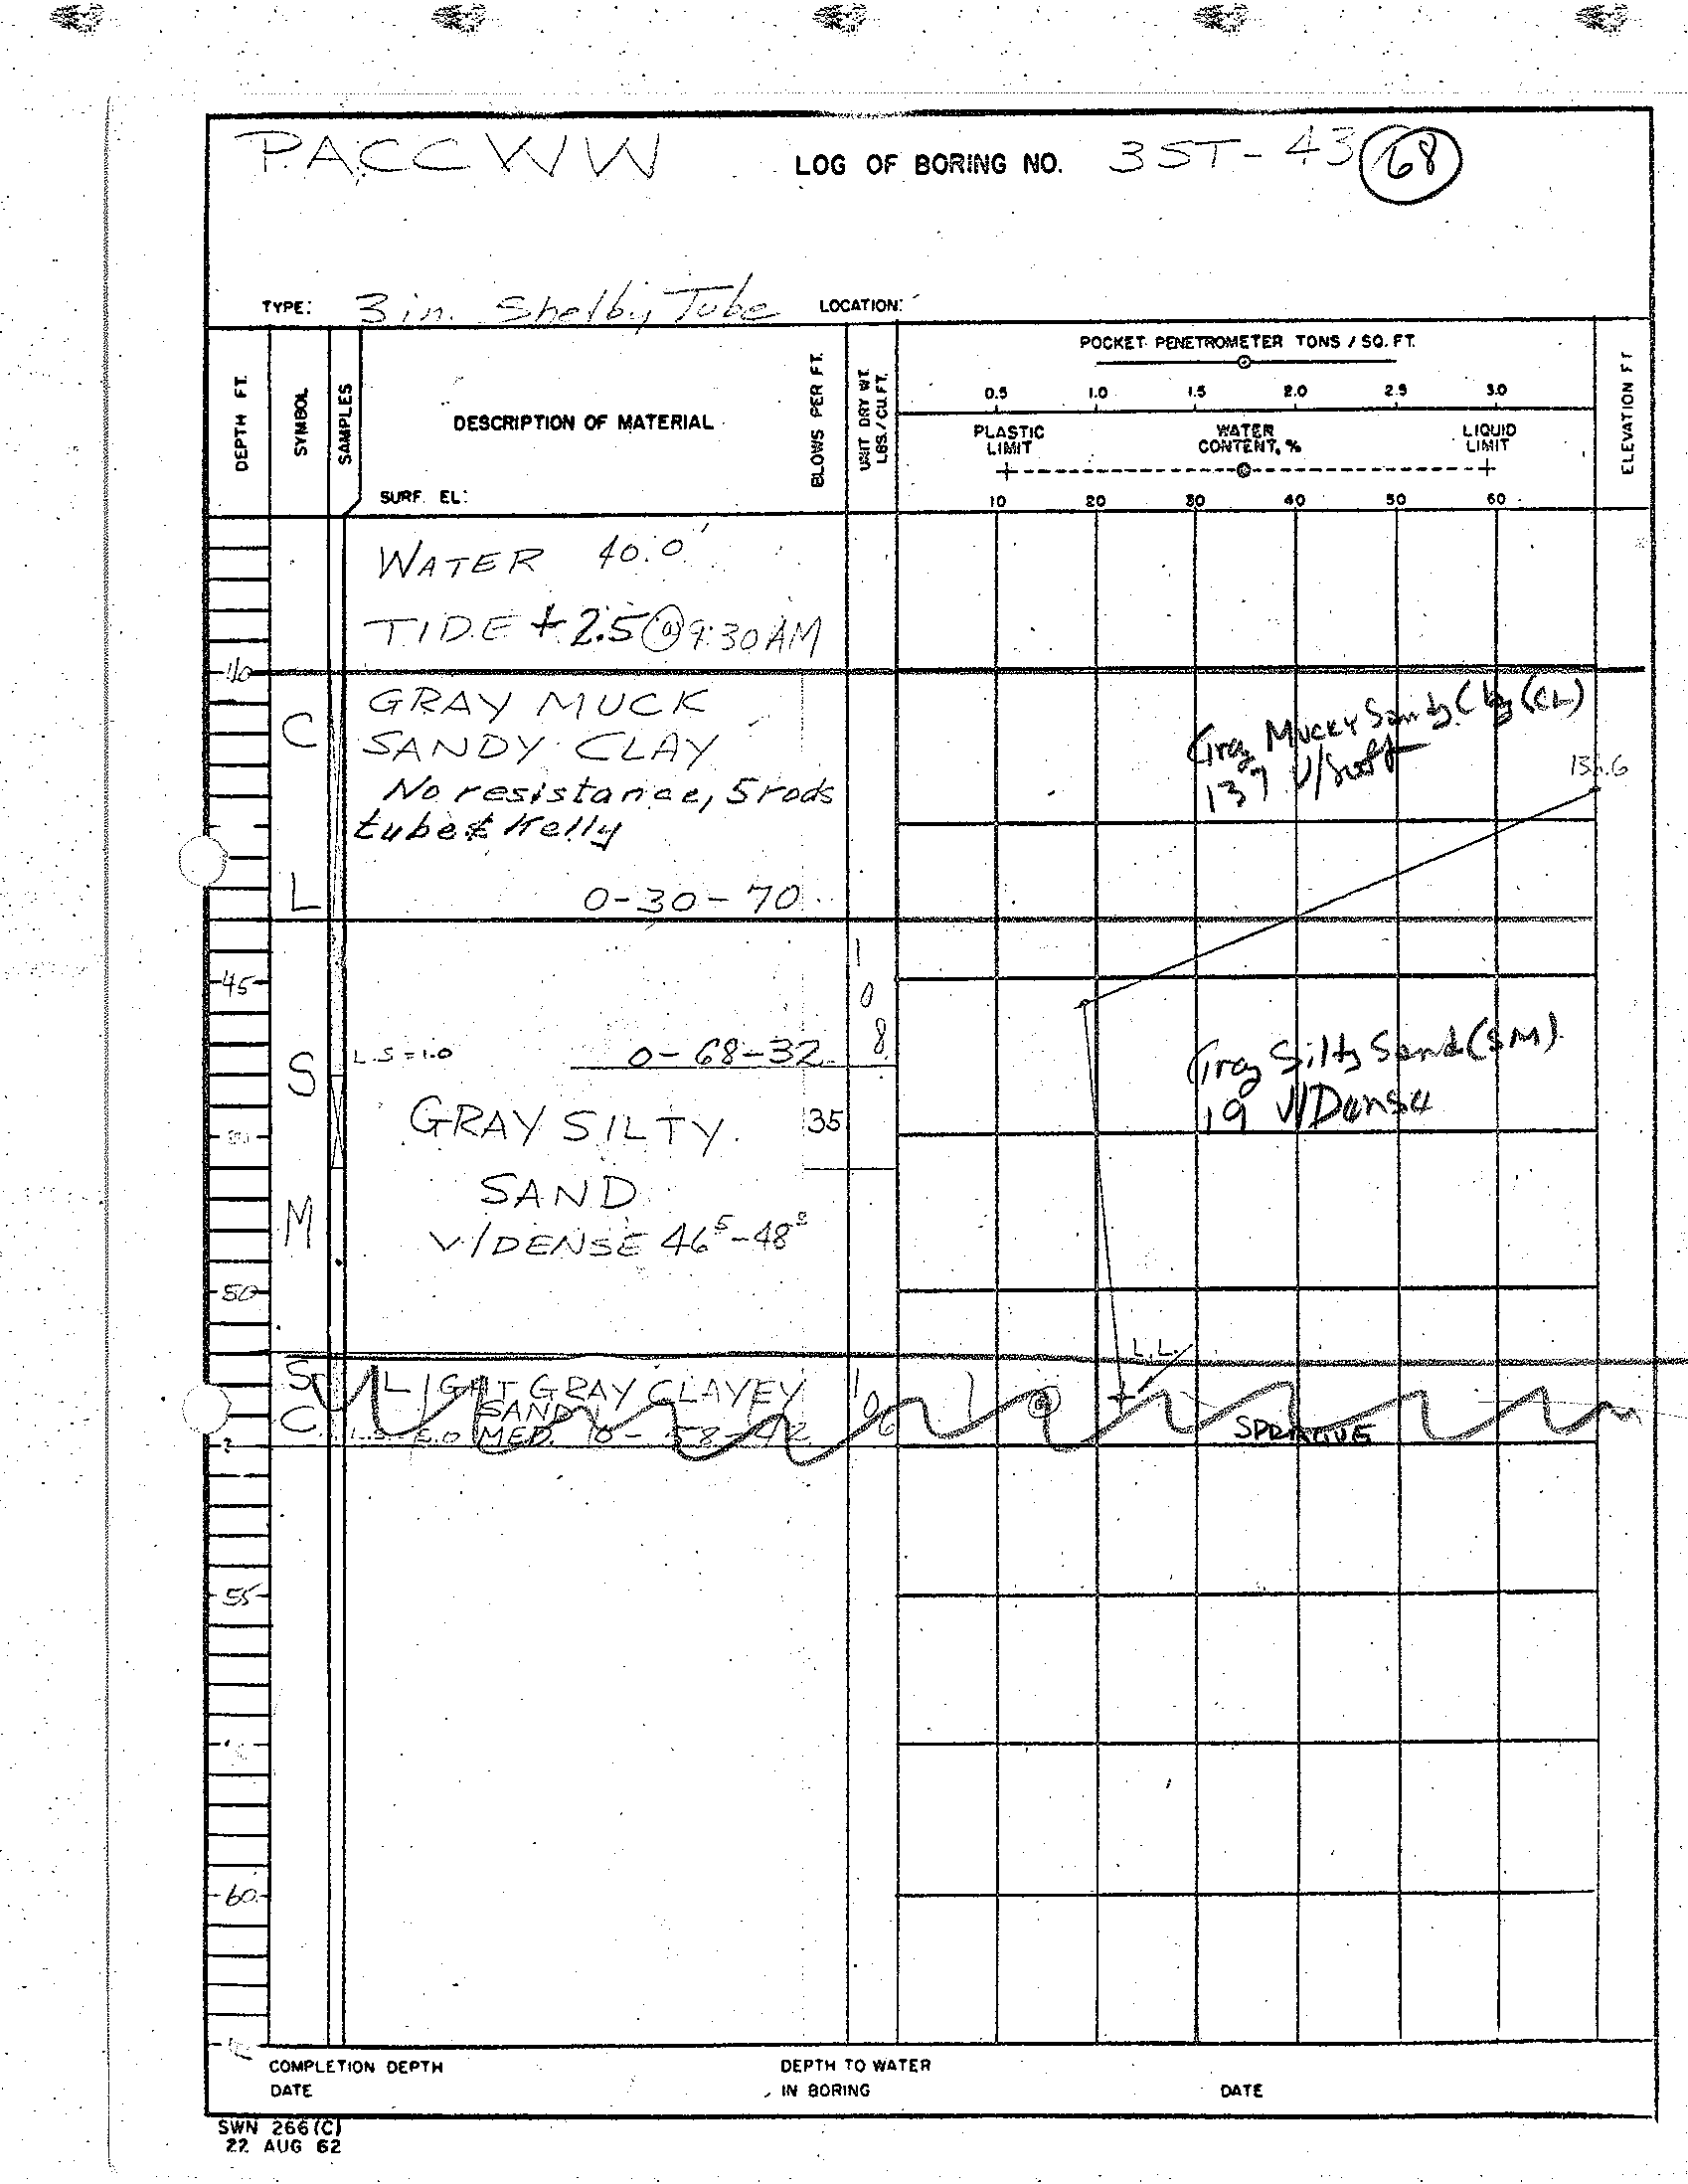 PACCWW LOG OF BORING NO. 3ST-43 68
TYPE: 3 in. Shelby Tube LOCATION:
DEPTH FT.
SYMBOL
SAMPLES
DESCRIPTION OF MATERIAL
SURF. EL:
BLOWS PER FT.
UNIT DRY WT.
LBS./CU.FT.
POCKET PENETROMETER TONS / SQ. FT.
0.5 1.0 1.5 2.0 2.5 3.0
PLASTIC LIMIT
WATER CONTENT, %
LIQUID LIMIT
10 20 30 40 50 60
ELEVATION FT
WATER 40.0'
TIDE + 2.5 @ 9:30 AM
40
CL
GRAY MUCK
SANDY CLAY
No resistance, 5 rods
tube & Kelly
0-30-70
Gray Mucky Sandy Clay (CL)
137 V/Soft
45
108
SM
L.S = 1.0 0-68-32
GRAY SILTY
35
SAND
V/DENSE 46⁵-48⁵
Gray Silty Sand (SM)
19 V/Dense
50
SC
LIGHT GRAY CLAYEY
SAND
MED.
106
L.L.
SPRAGUE
55
60
COMPLETION DEPTH
DATE
DEPTH TO WATER
IN BORING
DATE
SWN 266 (C)
22 AUG 62